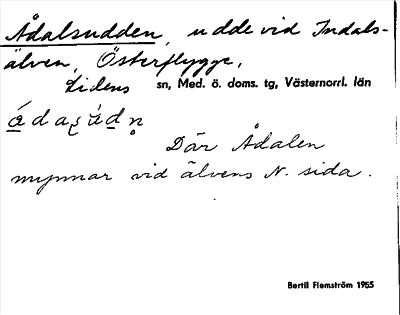 Ådalsudden, udde vid Indals-
älven, Österflygge,
Lidens sn, Med. ö. doms. tg, Västernorrl. län
Där Ådalen
mynnar vid älvens N. sida.
Bertil Flemström 1955